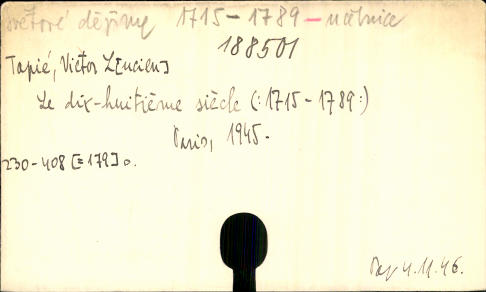 světové dějiny 1715 - 1789 - učebnice
188501
Tapié, Victor L[ucien]
Le dix-huitième siècle (: 1715 - 1789 :)
Paris, 1945.
230-408 [=179] o.
4.11.46.